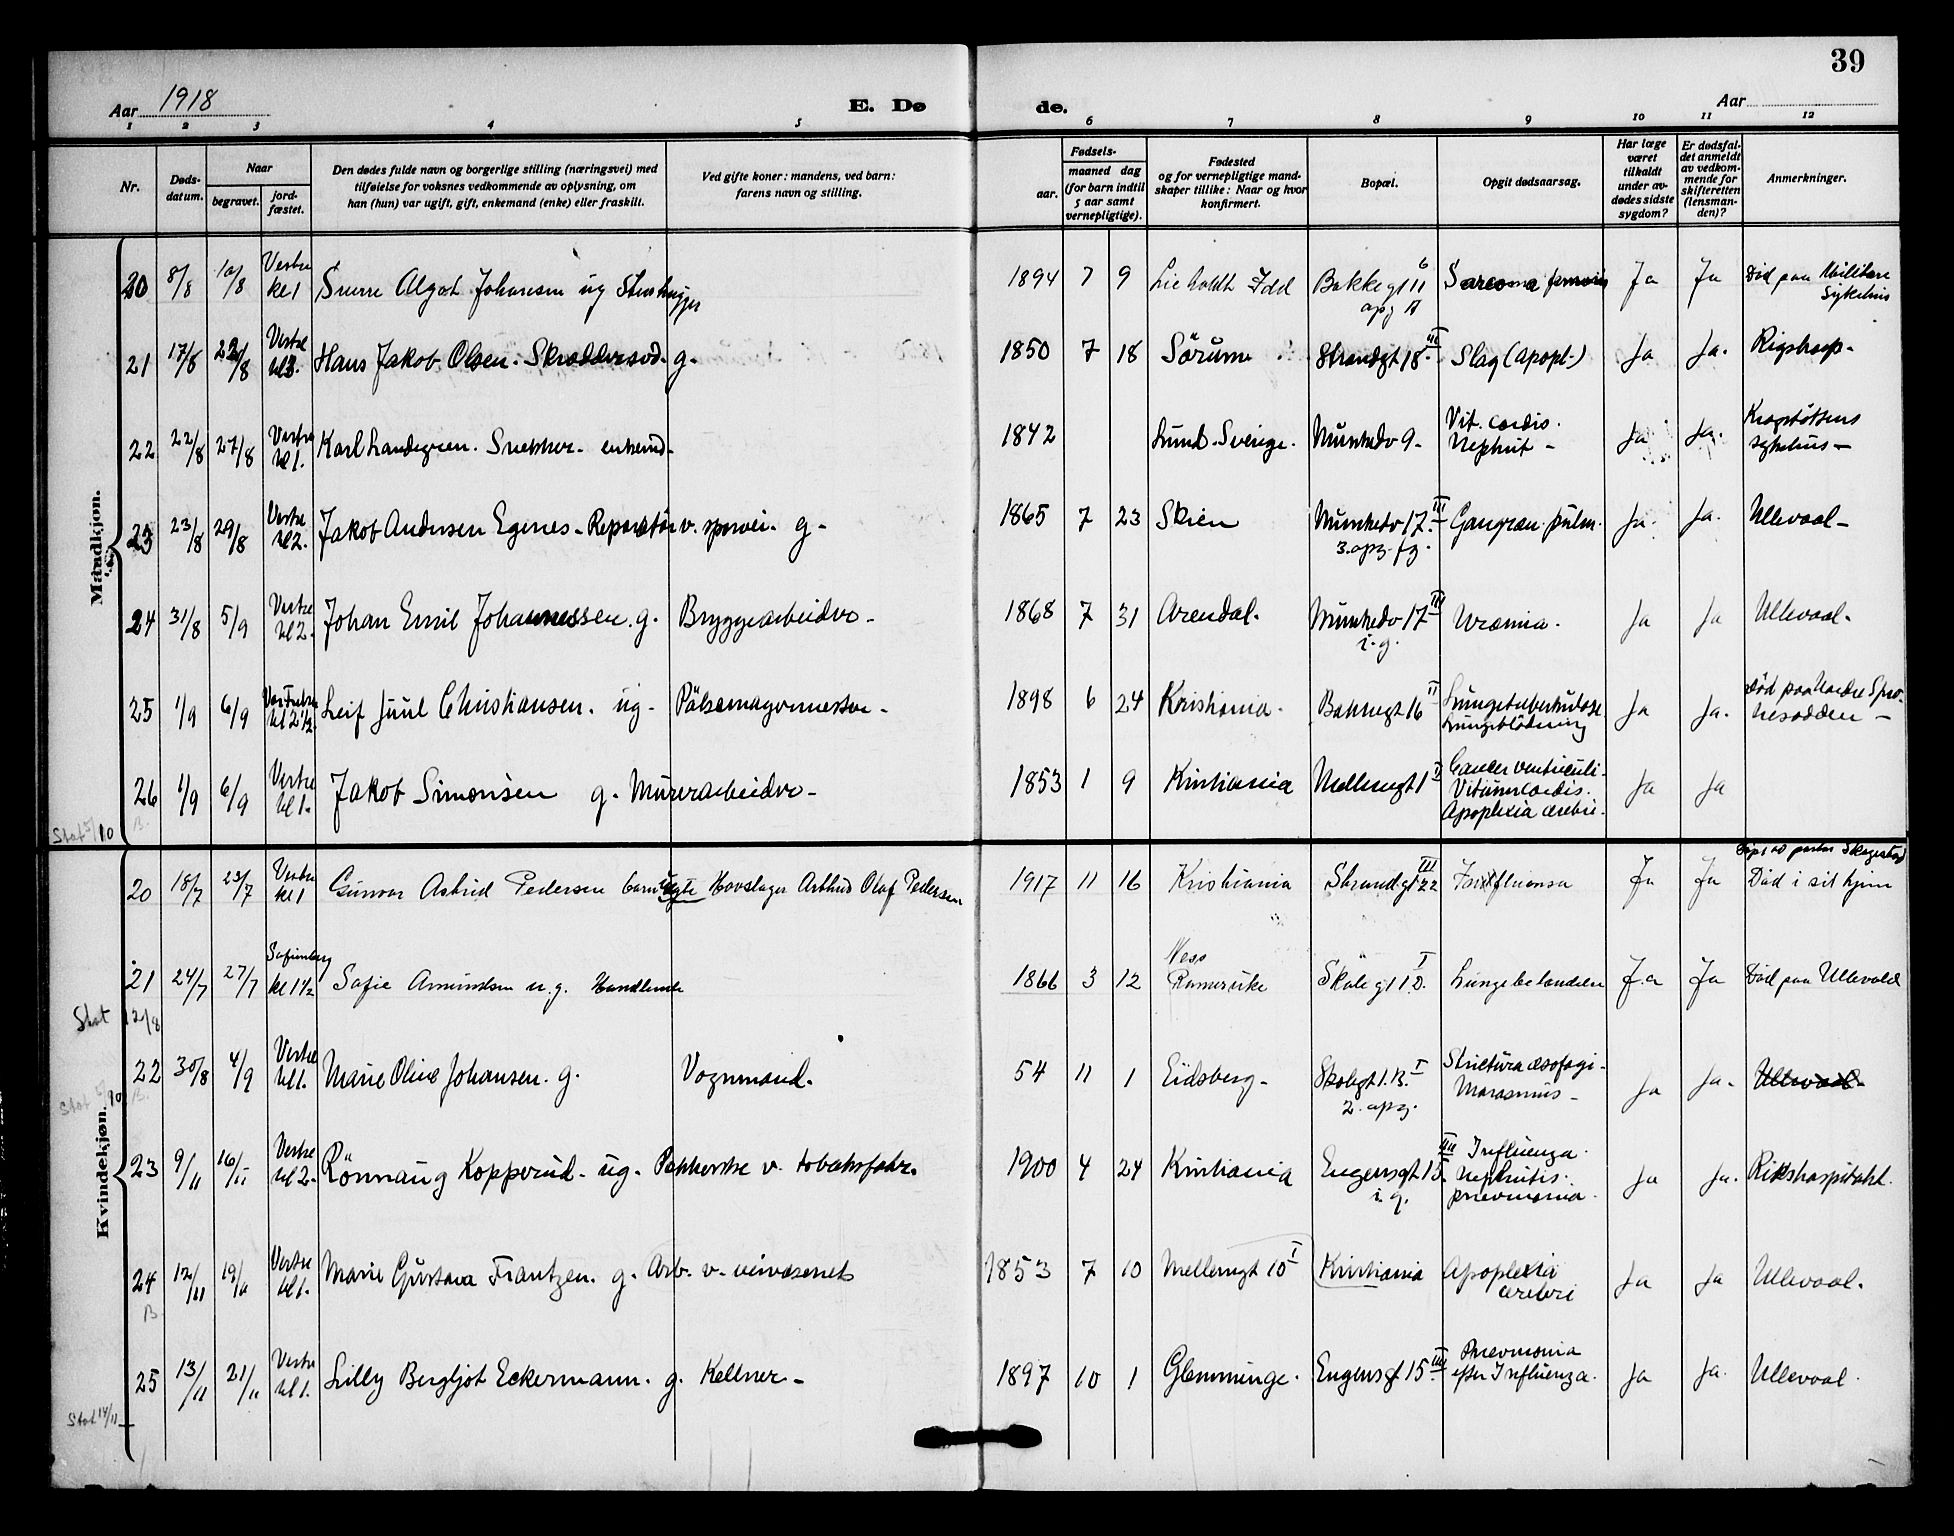 39
Aar 1918
E. Dø
de.
Aar
1 2 3 4 5 6 7 8 9 10 11 12
Nr.
Døds-
datum.
Naar
begravet.
jord-
fæstet.
Den dødes fulde navn og borgerlige stilling (næringsvei) med
tilføielse for voksnes vedkommende av oplysning, om
han (hun) var ugift, gift, enkemand (enke) eller fraskilt.
Ved gifte koner: mandens, ved barn:
farens navn og stilling.
Fødsels-
aar.
maaned dag
(for barn indtil
5 aar samt
vernepligtige).
Fødested
og for vernepligtige mand-
skaper tillike: Naar og hvor
konfirmert.
Bopæl.
Opgit dødsaarsag.
Har læge
været
tilkaldt
under av-
dødes sidste
sygdom?
Er dødsfal-
det anmeldt
av vedkom-
mende for
skifteretten
(lensman-
den)?
Anmerkninger.
Mandkjøn.
20 8/8 10/8 Vestre kl 1 Sverre Algot Johansen ug 1894 7 9 Idd Bakkegt 11 Sarcoma femoris Ja Ja Död paa Militære Sykehus
21 17/8 22/8 Vestre kl 3. Hans Jakob Olsen. Skræddersvd. g. 1850 7 18 Sörum Strandgt 18 III Slag (apopl.) Ja Ja. Rigshosp.
22 22/8 27/8 Vestre kl 1. Karl Landegren. Snekker. enkemd. 1842 Lund. Sverige. Munkedv 9. Vit. cordis. Nephrit Ja Ja. Krogstöttens sykehus
23 23/8 29/8 Vestre kl 2. Jakob Andersen Egenes. Reparatör v. sporvei. g. 1865 7 23 Skien Munkedv 17 III 3. opg. Gangræn pulm. Ja. Ja. Ullevaal
24 31/8 5/9 Vestre kl 2. Johan Emil Johannessen. g. Bryggearbeider 1868 7 31 Arendal. Munkedv 17 III i.g. Uræmia. Ja Ja Ullevaal.
25 1/9 6/9 Vor Frelser kl 2 1/2. Leif Juul Christiansen. ug. Pölsemagermester 1898 6 24 Kristiania. Bakkegt 16 II Lungetuberkulose Lungeblödning Ja Ja.
26 1/9 6/9 Vestre kl 1. Jakob Simonsen g. Murerarbeider 1853 1 9 Kristiania Mellemgt 1 Cancer ventriculi. Vitium cordis. Apoplexia cerebri. Ja Ja
Stat 5/10
Kvindekjøn.
20 18/7 23/7 Vestre kl 1 Gunvor Astrid Pedersen barn ægte Hovslager Arthur Olaf Pedersen 1917 11 16 Kristiania Strandgt 22 III Ja Ja Död i sit hjem
21 24/7 27/7 Sofienberg kl 1 1/2 Sofie Amundsen u.g. Handlende 1866 3 12 Nes Romerike Skole gt 1 B. I Lungebetændelse Ja Ja Död paa Ullevold
Stat 12/8
22 30/8 4/9 Vestre kl 1. Marie Oline Johansen. g. Vognmand. 54 11 1 Eidsberg Skolegt 1. B. I 2. opg. Strictura oesofagi. Marasmus Ja Ja. Ullevaal
Stat 5/10
23 9/11 16/11 Vestre kl 2. Rönnaug Kopperud. ug. Pakkerske v. tobaksfabr. 1900 4 24 Kristiania Engensgt 15. III i. g. Influenza. Nephritis. pneumonia. Ja Ja. Rikshospitalet.
24 12/11 19/11 Vestre kl 1. Marie Gustava Frantzen. g. Arb. v. veivæsenet 1853 7 10 Mellemgt 10 I Kristiania Apoplexia cerebri Ja Ja Ullevaal.
B
25 13/11 21/11 Vestre kl 1. Lilly Bergljot Eckermann. g. Kellner 1897 10 1 Glemminge. Engensgt 15 III Pneumonia efter Influenza. Ja Ja. Ullevaal.
Stat 14/11